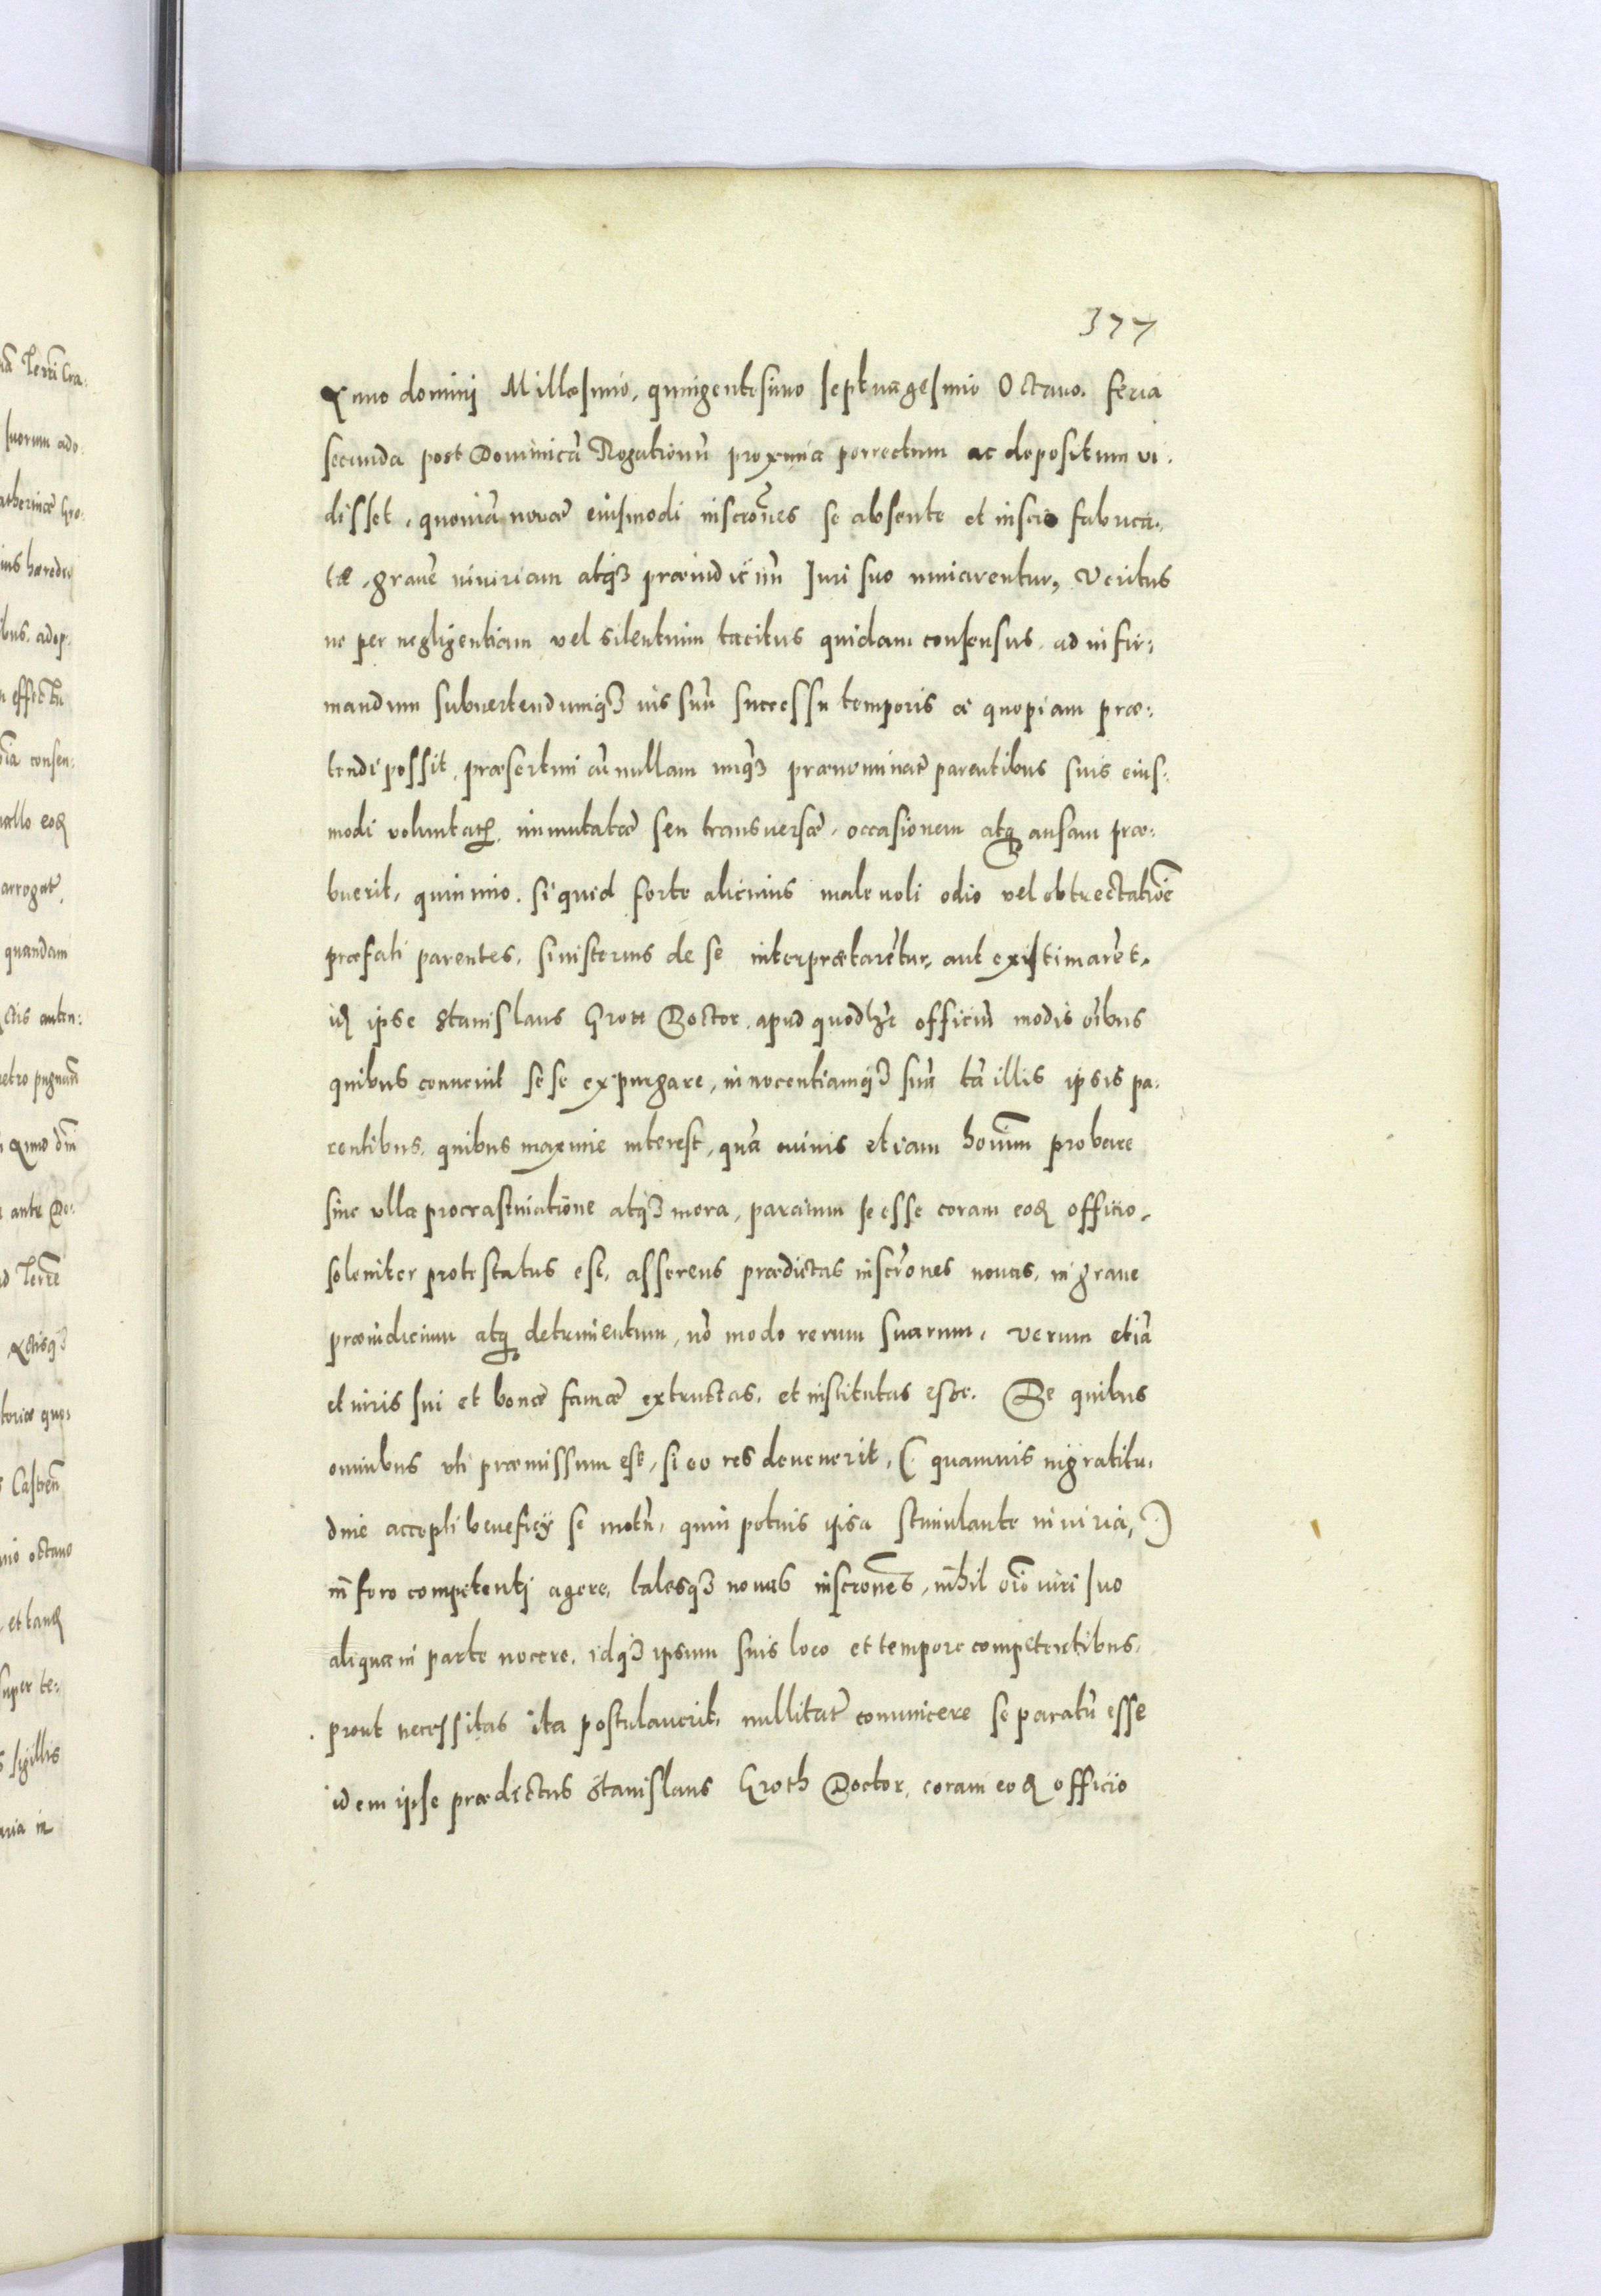 377
Anno dominj Millesimo, quingentesimo septuagesimo Octauo. feria
secunda post Dominicā Rogationū proxima porrectum ac depositum vi-
disset, quoniā novæ eiusmodi inscrōnes se absente et inscio fabrica-
tæ, grauē iniuriam atq3 præiudiciūm Iuri suo miniarentur, Veritus
ne per negligentiam vel silentium tacitus quidam consensus, ad infir-
mandum subuertendumq3 ius suū successu temporis a quopiam præ-
tendi possit, præsertim cū nullam unq3 prænominat̄ parentibus suis eius-
modi voluntat̄ immutatæ seu transuersæ, occasionem atq ansam præ-
buerit, quinimo. si quid forte alicuius maleuoli odio vel obtrectatiōe
præfati parentes, sinisterius de se interpraetarētur, aut existimarēt,
id ipse Stanislaus Grott Doctor, apud quodlz̄e officiū modis oībus
quibus conuenit sese expurgare, innocentiamq3 suā tā illis ipsis pa-
rentibus, quibus maxime interest, quā cuiuis etiam hominū probare
sine ulla procrastinatione atq3 mora, paratum se esse coram eod officio,
solemniter protestatus est, asserens prædictas inscrōnes nouas, in graue
præiudicium atq detrimentum, nō modo rerum suarum, verum etiā
et iuris sui et bonæ famæ extructas, et institutas esse. De quibus
omnibus uti præmissum est, si eo res deuenerit, (quamuis ingratitu-
dine accepti beneficij se motū, quin potius ipsa stimulante iniuria,)
in foro competentj agere, talesq3 nouas inscrōnes, nihil oīo iuri suo
aliqua in parte nocere, idq3 ipsum suis loco et tempore competentibus,
prout necessitas ita postulauerit, nullitat̄ conuincere se paratū esse
idem ipse prædictus Stanislaus Groth Doctor, coram eod officio